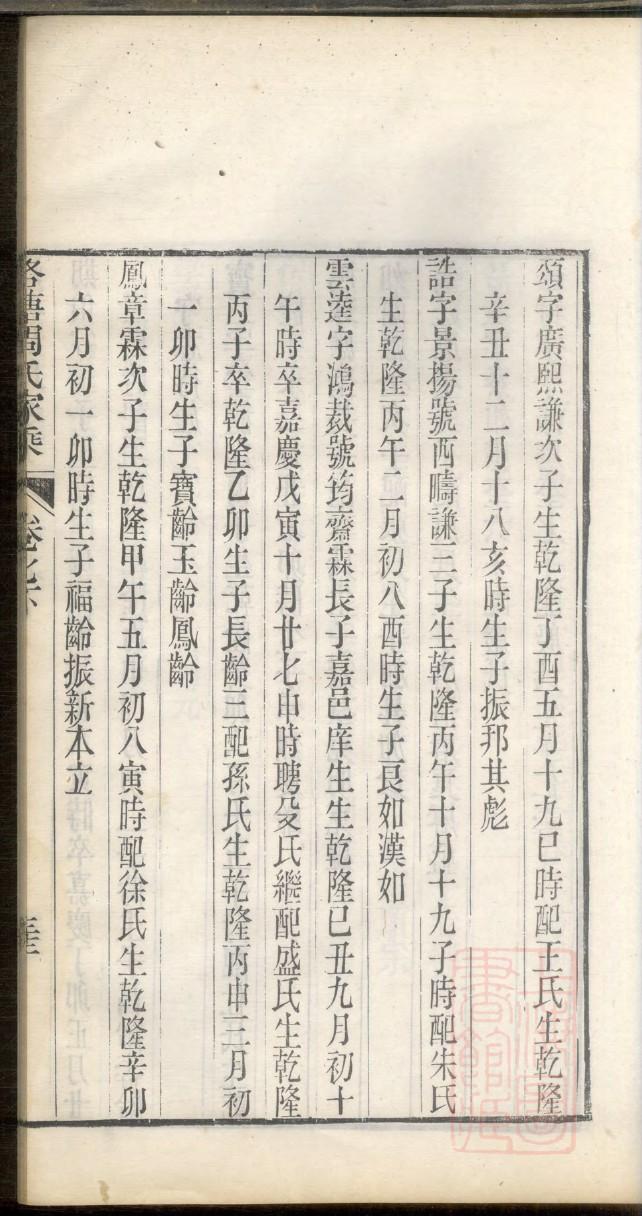 頌字廣熙謙次子生乾隆丁酉五月十九巳時配王氏生乾隆
辛丑十二月十八亥時生子振邦其彪
誥字景揚號西疇謙三子生乾隆丙午十月十九子時配朱氏
生乾隆丙午二月初八酉時生子良如漢如
雲逵字鴻裁號筠齋霖長子嘉邑庠生生乾隆己丑九月初十
午時卒嘉慶戊寅十月廿七申時聘殳氏繼配盛氏生乾隆
丙子卒乾隆乙卯生子長齡三配孫氏生乾隆丙申三月初
一卯時生子寶齡玉齡鳳齡
鳳章霖次子生乾隆甲午五月初八寅時配徐氏生乾隆辛卯
六月初一卯時生子福齡振新本立
塘周氏家乘 卷之下